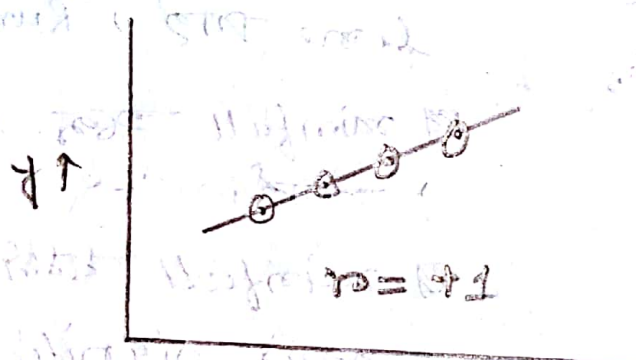 y ↑
r = +1